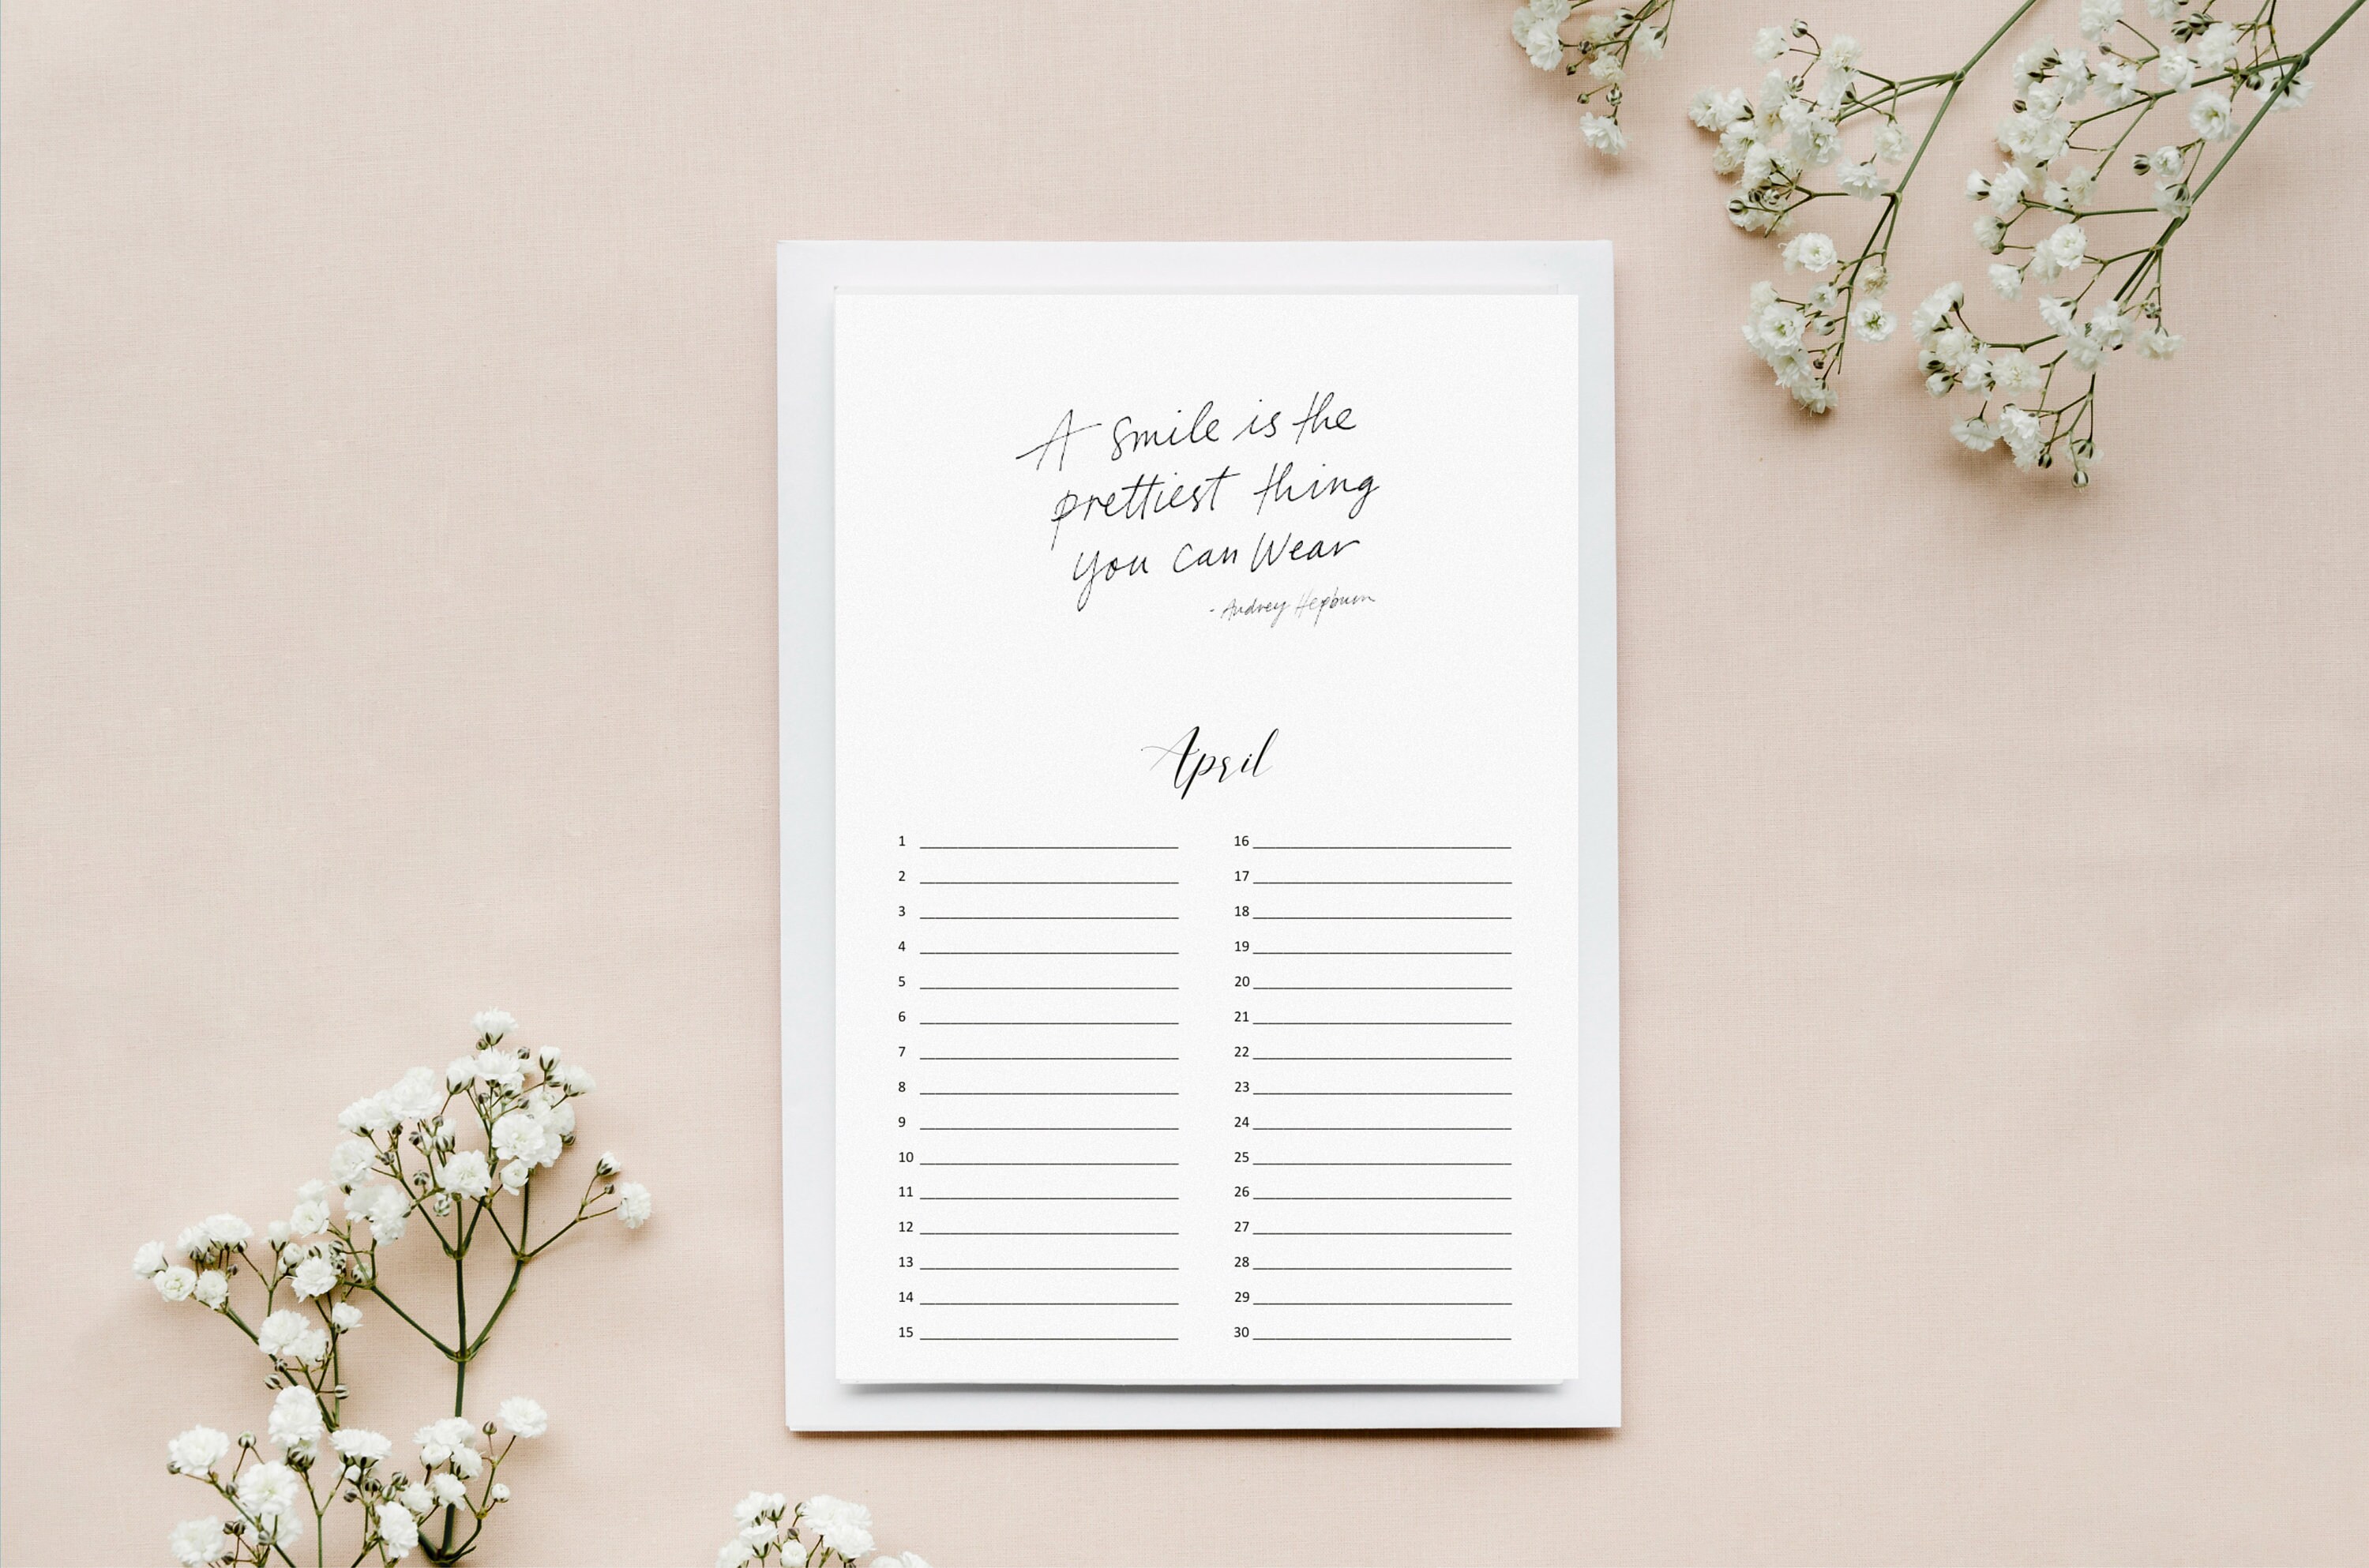 A smile is the
prettiest thing
you can wear
- Audrey Hepburn
April
1
2
3
4
5
6
7
8
9
10
11
12
13
14
15
16
17
18
19
20
21
22
23
24
25
26
27
28
29
30